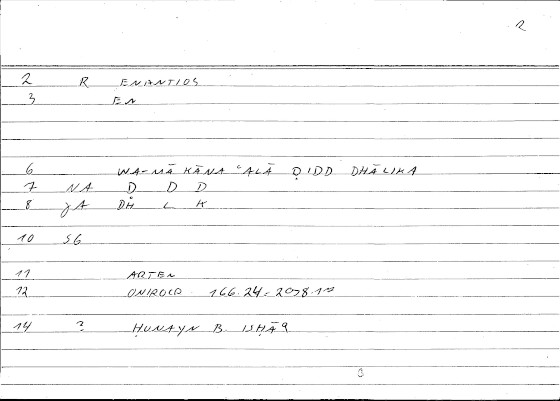 2
2 R ENANTIOS
3 EN
6 WA-MĀ KĀNA ʿALĀ ḌIDD DHĀLIKA
7 NA D D D
8 YA DH L K
10 SG
11 ARTEM
12 ONIROCR 166.24 = 298.17
14 ? ḤUNAYN B. ISḤĀQ